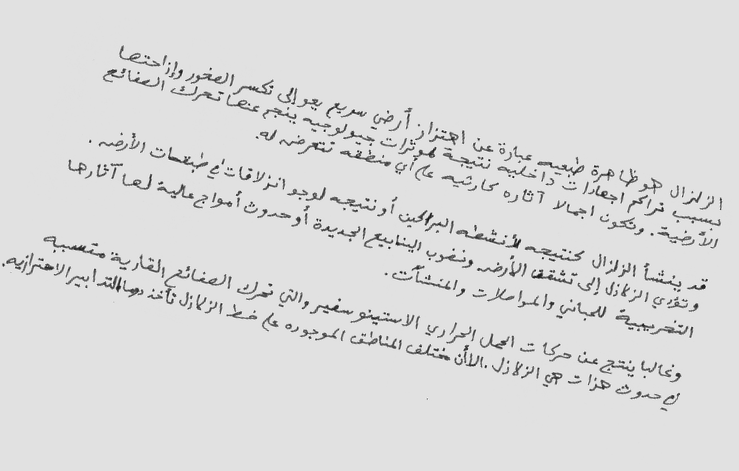 الزلزال هو ظاهرة طبعيه عبارة عن اهتزاز أرضي سريع يعو إلى تكسر الصخور وإزاحتها
بسبب تراكم اجهادات داخليه نتيجة لمؤثرات جيولوجيه ينجم عنها تحرك الصفائح
الأرضية. وتكون اجمالا آثاره كارثيه على أي منطقه تتعرض له.
قد ينشأ الزلزال كنتيجه لأنشطه البراكين أو نتيجه لوجو انزلاقات في طبقات الأرضه.
وتؤدي الزلازل إلى تشقق الأرضه ونضوب الينابيع الجديدة أو حدوث أمواج عالية لها آثارها
التخريبية للمباني والمواصلات والمنشآت.
وغالبا ينتج عن حركات الحمل الحراري الاستينو سفير والتي تحرك الصفائح القارية متسببه
في حدوث هزات هي الزلازل. الاأن مختلف المناطق الموجوده على خط الزلازل تأخذ التدابير الاحترازيه.